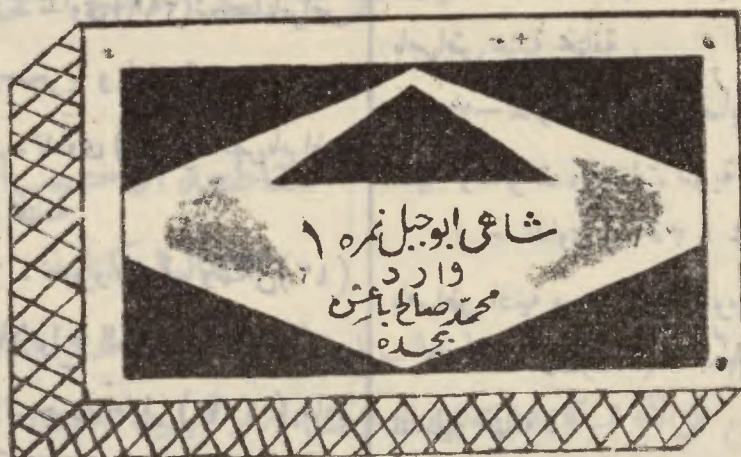 شاهى ابوجبل نمره ١
وارد
محمد صالح باعشن
بجده